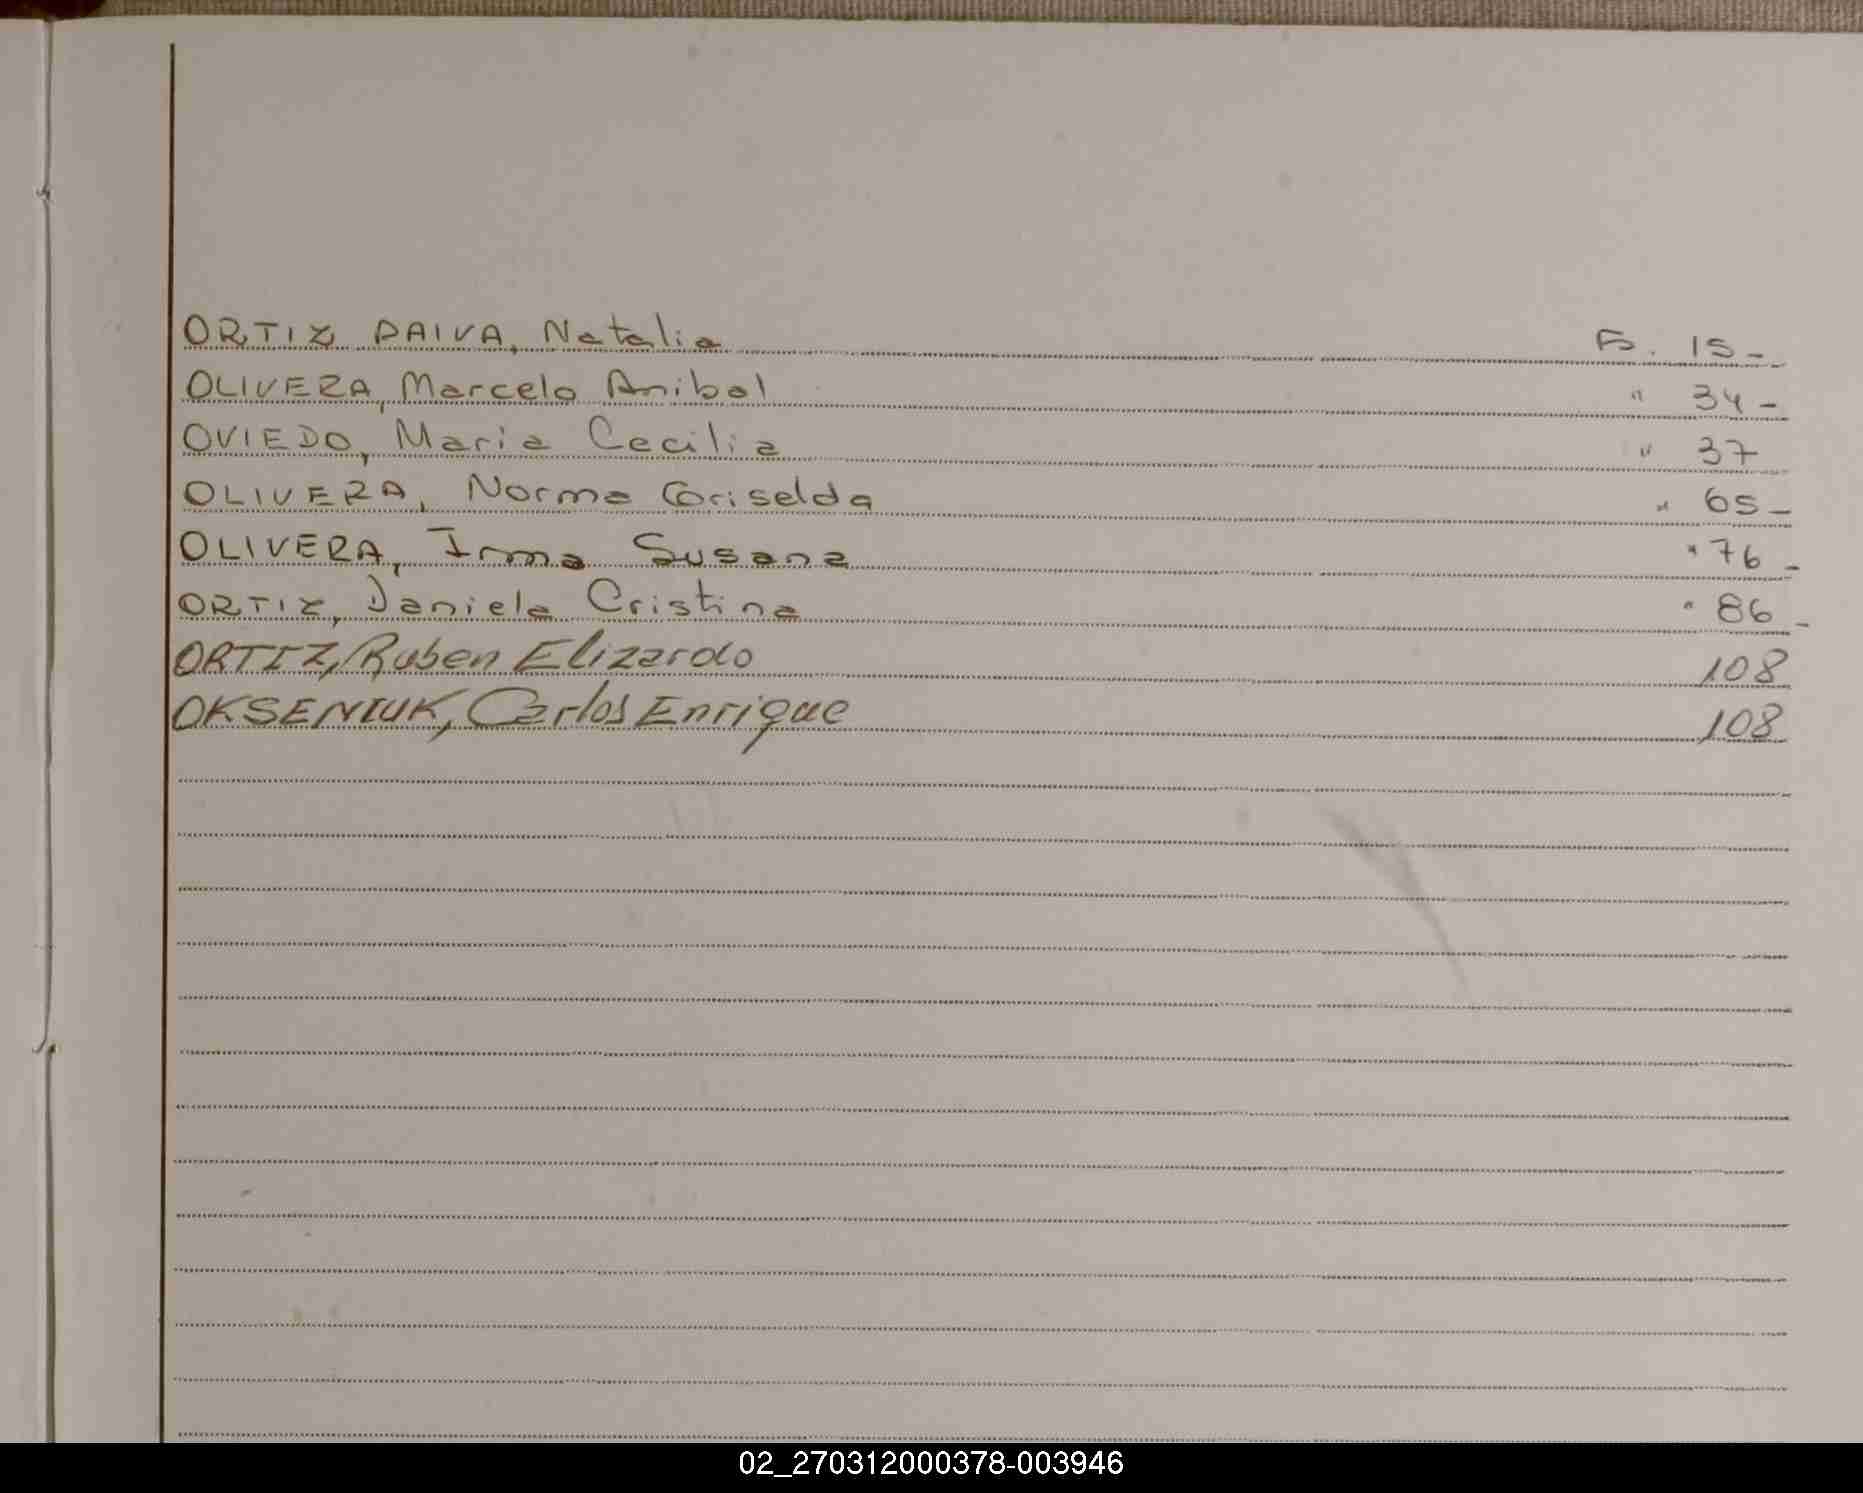 ORTIZ PAIVA, Natalia Fo. 15-
OLIVERA, Marcelo Anibal " 34-
OVIEDO, Maria Cecilia " 37
OLIVERA, Norma Griselda " 65-
OLIVERA, Irma Susana " 76-
ORTIZ, Daniela Cristina " 86-
ORTIZ, Ruben Elizardo 108
OKSENIUK, Carlos Enrique 108
02_270312000378-003946